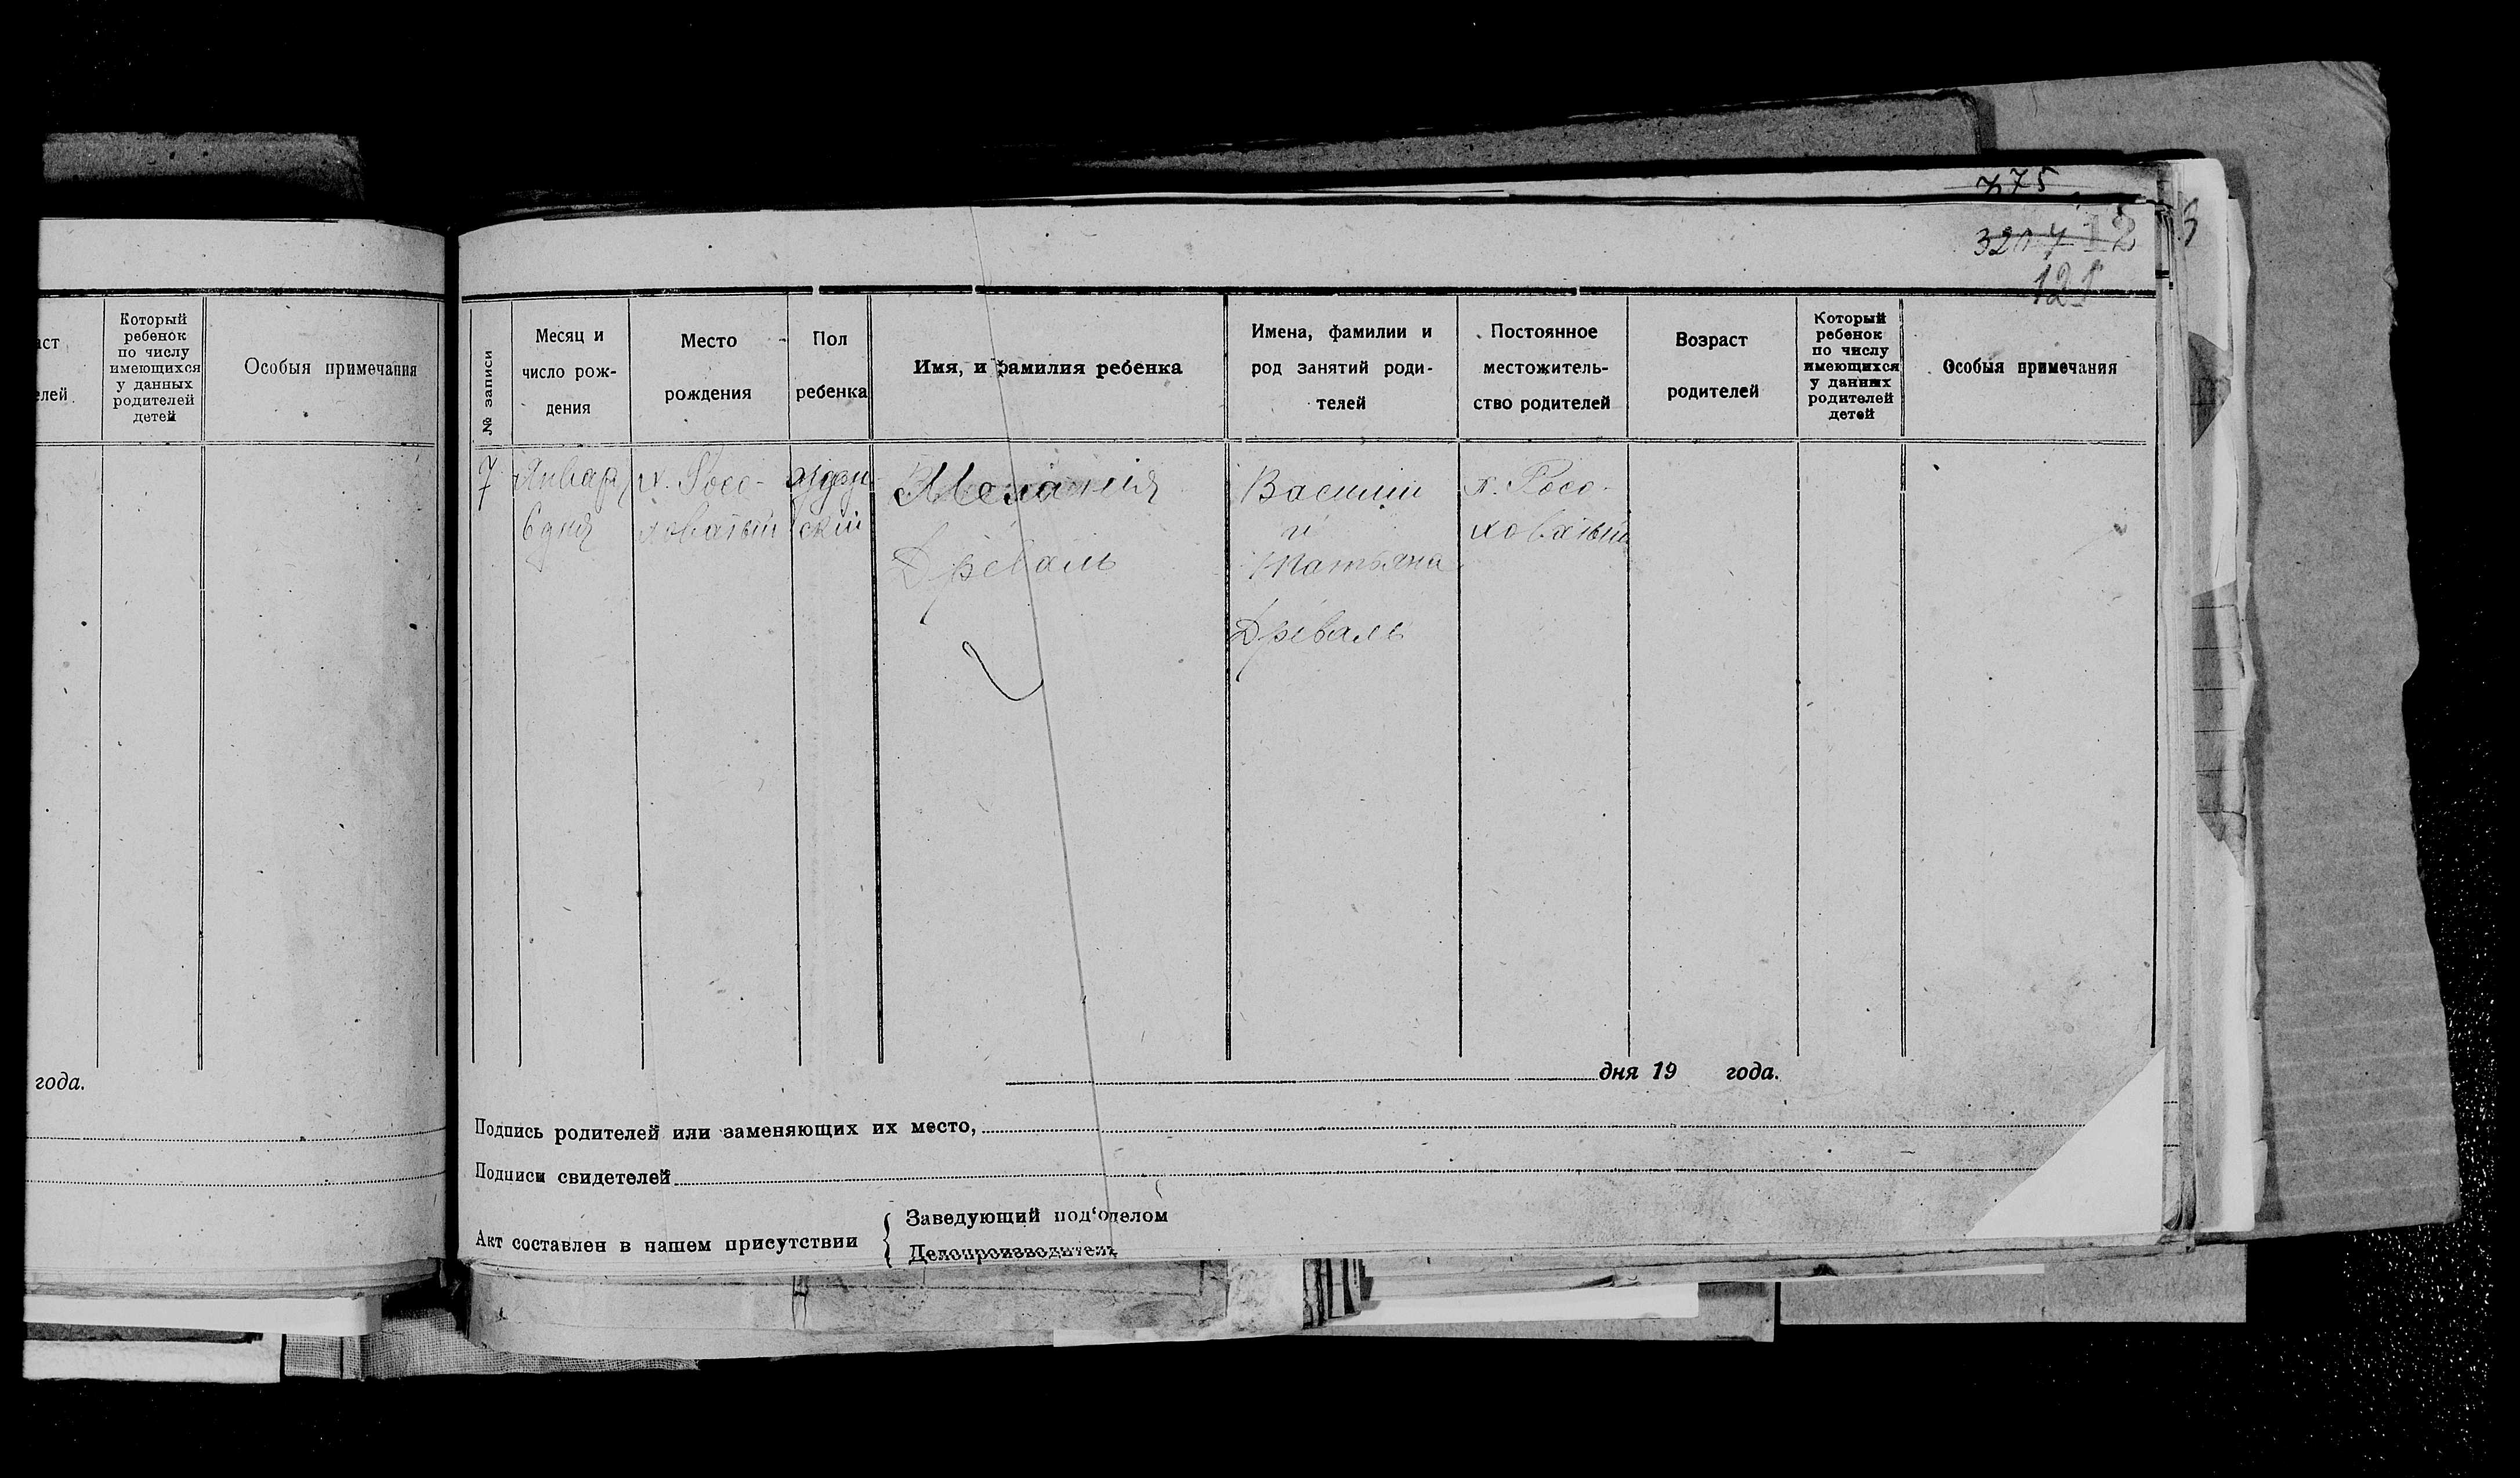 775
3207 12
121
аст
елей
Который
ребенок
по числу
имеющихся
у данных
родителей
детей
Особыя примечания
года.
№ записи
Месяц и
число рож-
дения
Место
рождения
Пол
ребенка
Имя, и фамилия ребенка
Имена, фамилии и
род занятий роди-
телей
Постоянное
местожитель-
ство родителей
Возраст
родителей
Который
ребенок
по числу
имеющихся
у данных
родителей
детей
Особыя примечания
7
Январ
6 дня
х. Росо-
ховатый
ский
Мелания
Древаль
Василий
и
Татьяна
Древаль
х. Росо-
ховатый
дня 19 года.
Подпись родителей или заменяющих их место,
Подписи свидетелей
Акт составлен в нашем присутствии
Заведующий под'отделом
Делопроизводитель